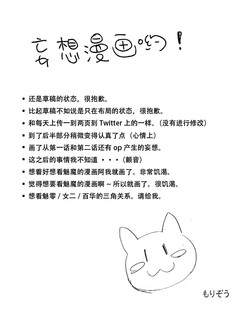 妄想漫画哟！
• 还是草稿的状态，很抱歉。
• 比起草稿不如说是只在布局的状态，很抱歉。
• 和每天上传一到两页到 Twitter 上的一样。（没有进行修改）
• 到了后半部分稍微变得认真了点（心情上）
• 画了从第一话和第二话还有 op 产生的妄想。
• 这之后的事情我不知道・・・（颤音）
• 想着好想看魅魔的漫画阿我就画了。非常饥渴。
• 觉得想要看魅魔的漫画啊 ~ 所以就画了。很饥渴。
• 想看魅零 / 女二 / 百华的三角关系。请给我。
もりぞう